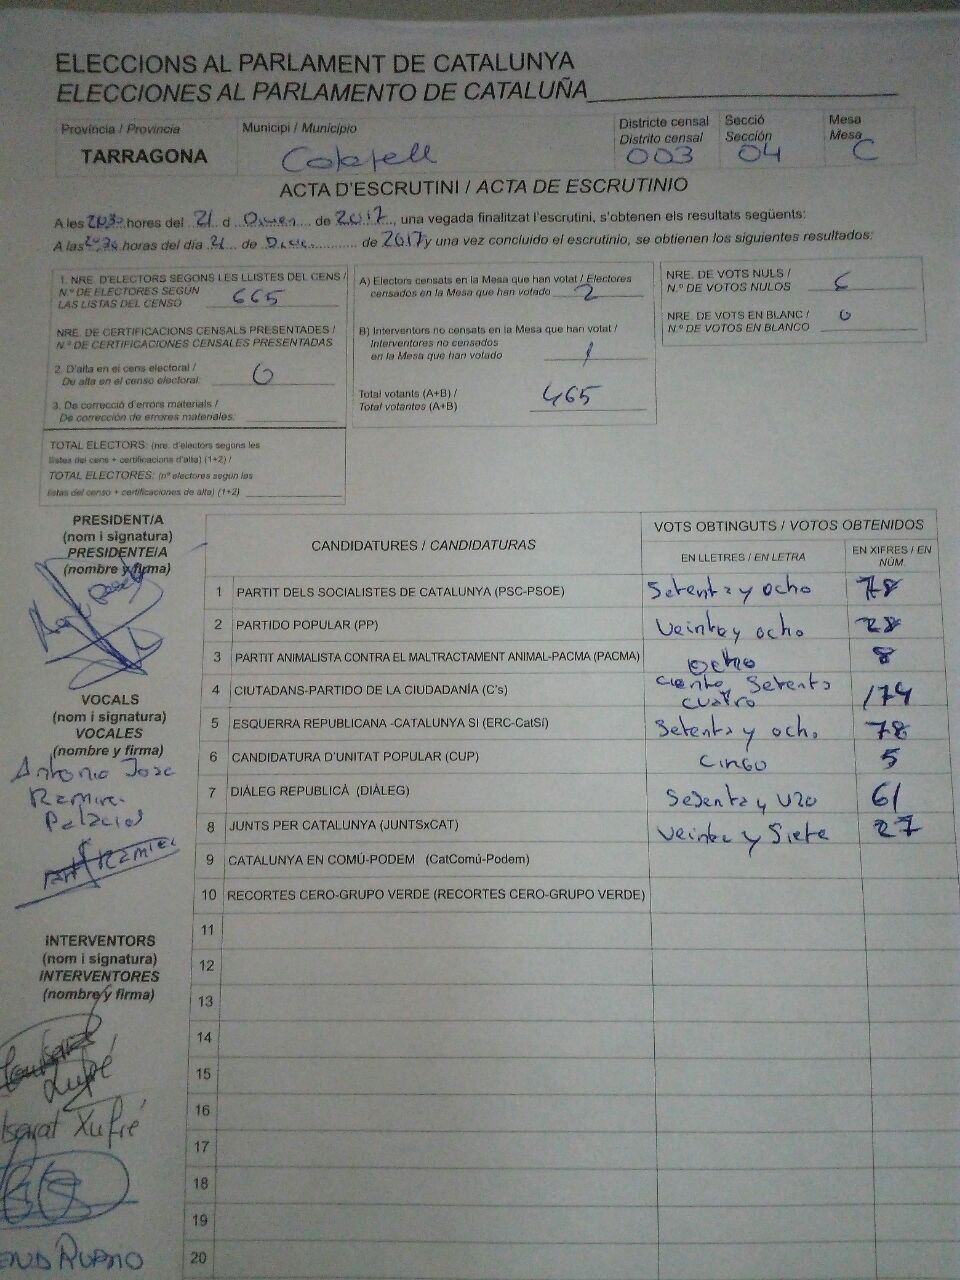 ELECCIONS AL PARLAMENT DE CATALUNYA
ELECCIONES AL PARLAMENTO DE CATALUÑA
Província / Provincia
TARRAGONA
Municipi / Municipio
Calafell
Districte censal
Distrito censal
003
Secció
Sección
04
Mesa
Mesa
C
ACTA D'ESCRUTINI / ACTA DE ESCRUTINIO
A les 2030 hores del 21 d de 2017, una vegada finalitzat l'escrutini, s'obtenen els resultats següents:
A las 2030 horas del día 21 de de 2017 y una vez concluido el escrutinio, se obtienen los siguientes resultados:
1. NRE. D'ELECTORS SEGONS LES LLISTES DEL CENS /
N.º DE ELECTORES SEGÚN
LAS LISTAS DEL CENSO 665
NRE. DE CERTIFICACIONS CENSALS PRESENTADES /
N.º DE CERTIFICACIONES CENSALES PRESENTADAS
2. D'alta en el cens electoral /
De alta en el censo electoral: 0
3. De correcció d'errors materials /
De corrección de errores materiales:
TOTAL ELECTORS: (nre. d'electors segons les
llistes del cens + certificacions d'alta) (1+2) /
TOTAL ELECTORES: (nº electores según las
listas del censo + certificaciones de alta) (1+2)
A) Electors censats en la Mesa que han votat / Electores
censados en la Mesa que han votado 2
B) Interventors no censats en la Mesa que han votat /
Interventores no censados
en la Mesa que han votado 1
Total votants (A+B) /
Total votantes (A+B) 465
NRE. DE VOTS NULS /
N.º DE VOTOS NULOS 6
NRE. DE VOTS EN BLANC /
N.º DE VOTOS EN BLANCO 0
PRESIDENT/A
(nom i signatura)
PRESIDENTE/A
(nombre y firma)
VOCALS
(nom i signatura)
VOCALES
(nombre y firma)
Antonio Jose
Ramirez
Palacios
INTERVENTORS
(nom i signatura)
INTERVENTORES
(nombre y firma)
Xufré
RUANO
CANDIDATURES / CANDIDATURAS
VOTS OBTINGUTS / VOTOS OBTENIDOS
EN LLETRES / EN LETRA
EN XIFRES / EN NÚM.
1 PARTIT DELS SOCIALISTES DE CATALUNYA (PSC-PSOE) Setenta y ocho 78
2 PARTIDO POPULAR (PP) Veinte y ocho 28
3 PARTIT ANIMALISTA CONTRA EL MALTRACTAMENT ANIMAL-PACMA (PACMA) ocho 8
4 CIUTADANS-PARTIDO DE LA CIUDADANÍA (C's) ciento Setenta cuatro 174
5 ESQUERRA REPUBLICANA -CATALUNYA SI (ERC-CatSí) Setenta y ocho 78
6 CANDIDATURA D'UNITAT POPULAR (CUP) cinco 5
7 DIÀLEG REPUBLICÀ (DIÀLEG) Sesenta y uno 61
8 JUNTS PER CATALUNYA (JUNTSxCAT) Veinte y Siete 27
9 CATALUNYA EN COMÚ-PODEM (CatComú-Podem)
10 RECORTES CERO-GRUPO VERDE (RECORTES CERO-GRUPO VERDE)
11
12
13
14
15
16
17
18
19
20